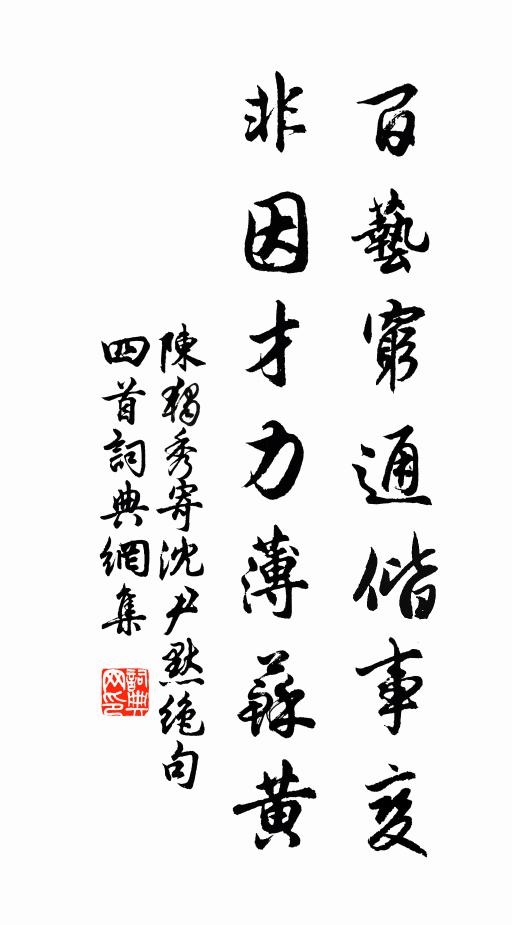 百藝窮通偕事變
非因才力薄蘇黄
陳獨秀寄沈尹默絶句
四首詞典網集
詞典
网印